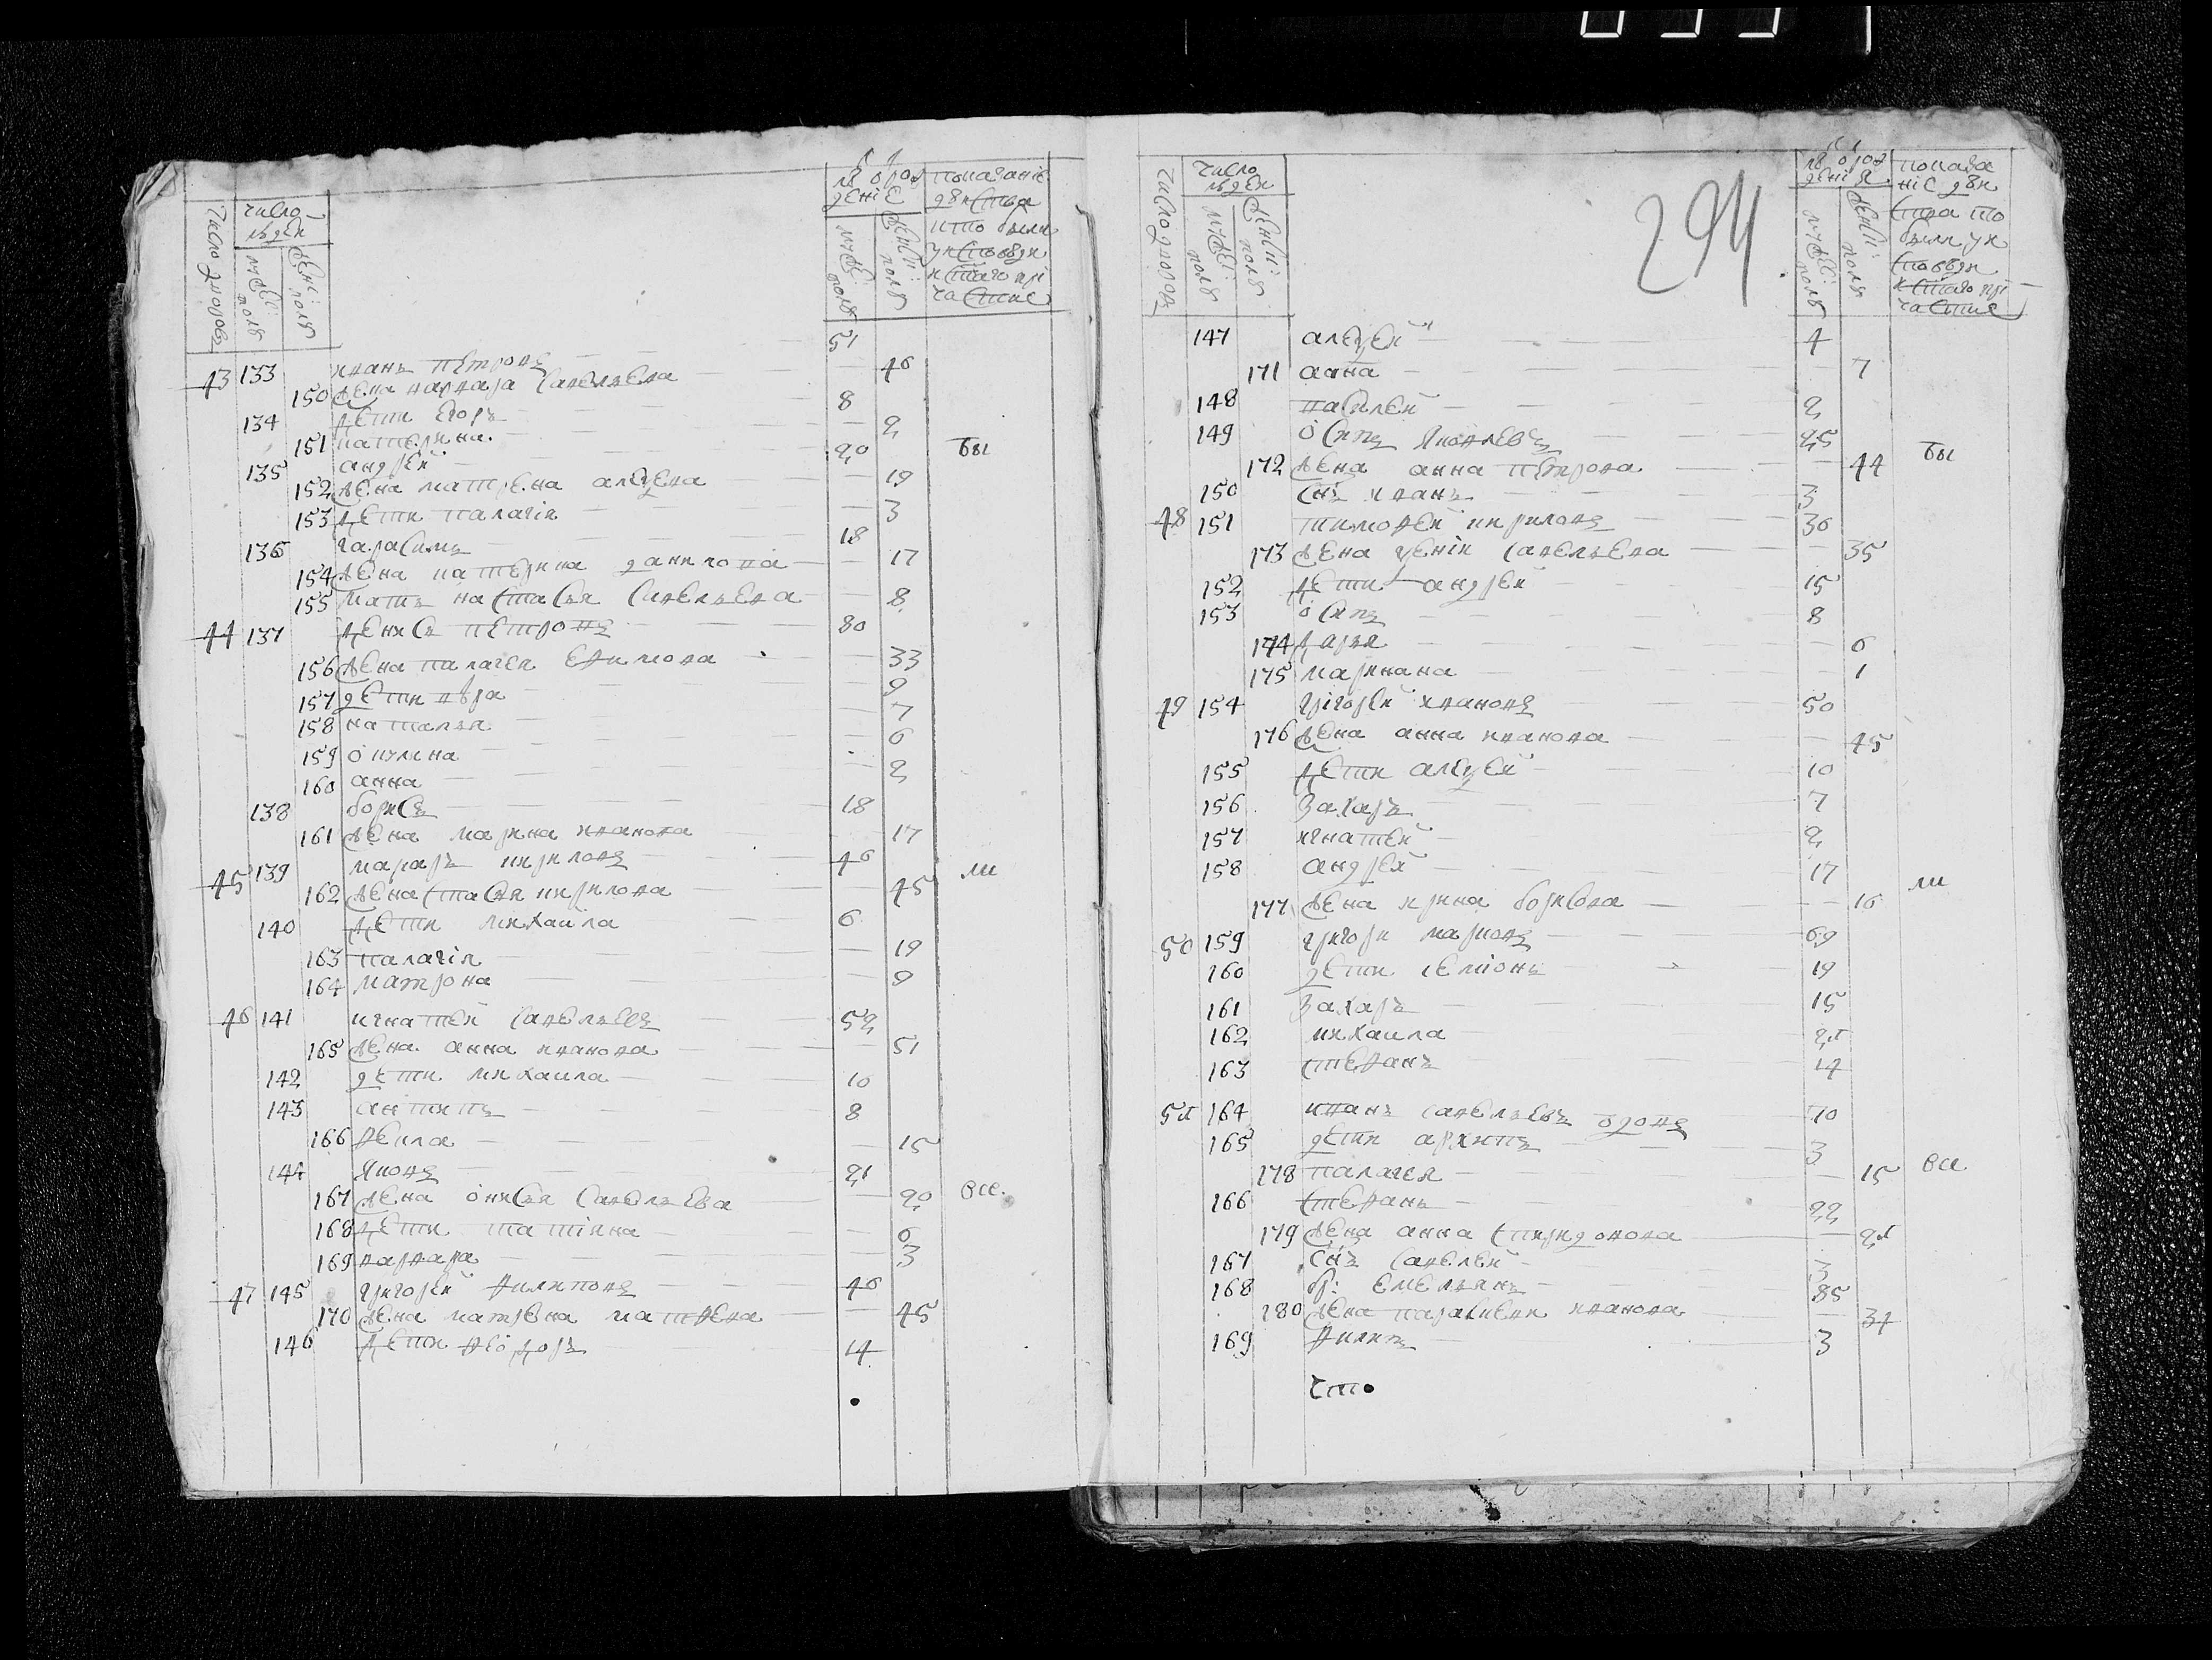 число дворовъ
число людей
мужес: полѣ
женс: полѣ
лѣ от рождениѣ
мужес: полѣ
женск: полѣ
показаніе дѣйства
кто были
у исповеди
и стаго при
частие
43 133 иванъ петровъ 51
150 жена варвара савельева 46
134 дети егоръ 8
151 катерина 2
135 андрей 20 бы
152 жена матрена алексеева 19
153 дети палагія 3
136 гарасимъ 18
154 жена катерина данилова 17
155 мать настасья савельева 8
44 137 денисъ петровъ 80
156 жена палагея ефимова 33
157 дети вера 9
158 наталья 7
159 окулина 6
160 анна 2
138 борисъ 18
161 жена марина иванова 17
45 139 макаръ кириловъ 46 ли
162 жена стася кирилова 45
140 дети михаила 6
163 палагія 19
164 матрона 9
46 141 игнатей савельевъ 52
165 жена анна иванова 51
142 дети михаила 10
143 антипъ 8
166 фекла 15
144 яковъ 21
167 жена онисья савельева 20 все.
168 дети татіяна 6
169 варвара 3
47 145 григорей филиповъ 46
170 жена матрена матфева 45
146 дети феодоръ 14
число дворовъ
число людей
мужес: полѣ
женск: полѣ
294
лѣ от рождения
мужес: полѣ
женс: полѣ
показа
ніе дѣй
ства кто
были у и
споведи
и стаго при
частие
147 алексей 4
171 анна 7
148 василей 2
149 осипъ яковлевъ 25
172 жена анна петрова 44 бы
150 снъ иванъ 3
48 151 тимофей кириловъ 36
173 жена ксенія савельева 35
152 дети андрей 15
153 осипъ 8
174 дарья 6
175 маринана 1
49 154 григорей ивановъ 50
176 жена анна иванова 45
155 дети алексей 10
156 захаръ 7
157 игнатей 2
158 андрей 17
177 жена ирина борисова 16 ли
50 159 григори марковъ 69
160 дети семіонъ 19
161 захаръ 15
162 михаила 21
163 стефанъ 14
51 164 иванъ савельевъ вдовъ 70
165 дети архипъ 3
178 палагея 15 все
166 стефанъ 22
179 жена анна спиридонова 21
167 снъ савелей 3
168 бр: емельянъ 35
180 жена парасковя иванова 34
169 филипъ 3
что